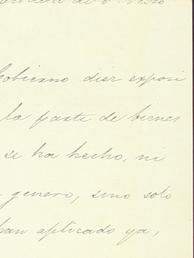 Gobierno diez exposi
la parte de bienes
se ha hecho, ni
genero, sino solo
han aplicado ya,